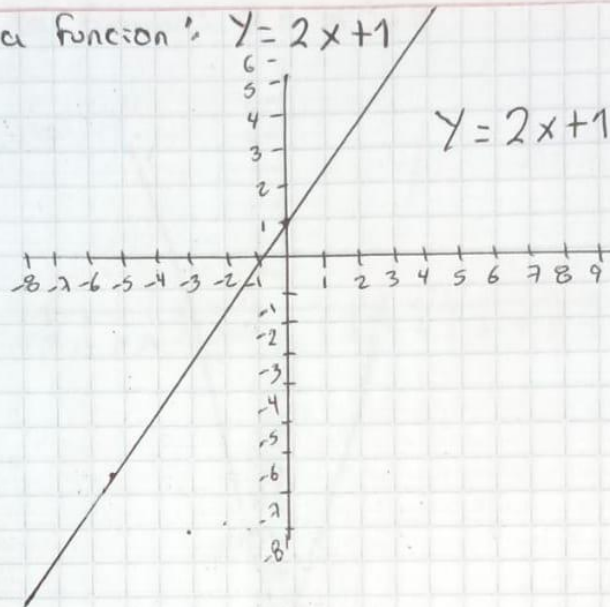 a funcion: Y = 2x+1
6
5
4
Y = 2x+1
3
2
1
-8 -7 -6 -5 -4 -3 -2 -1 1 2 3 4 5 6 7 8 9
-1
-2
-3
-4
-5
-6
-7
-8